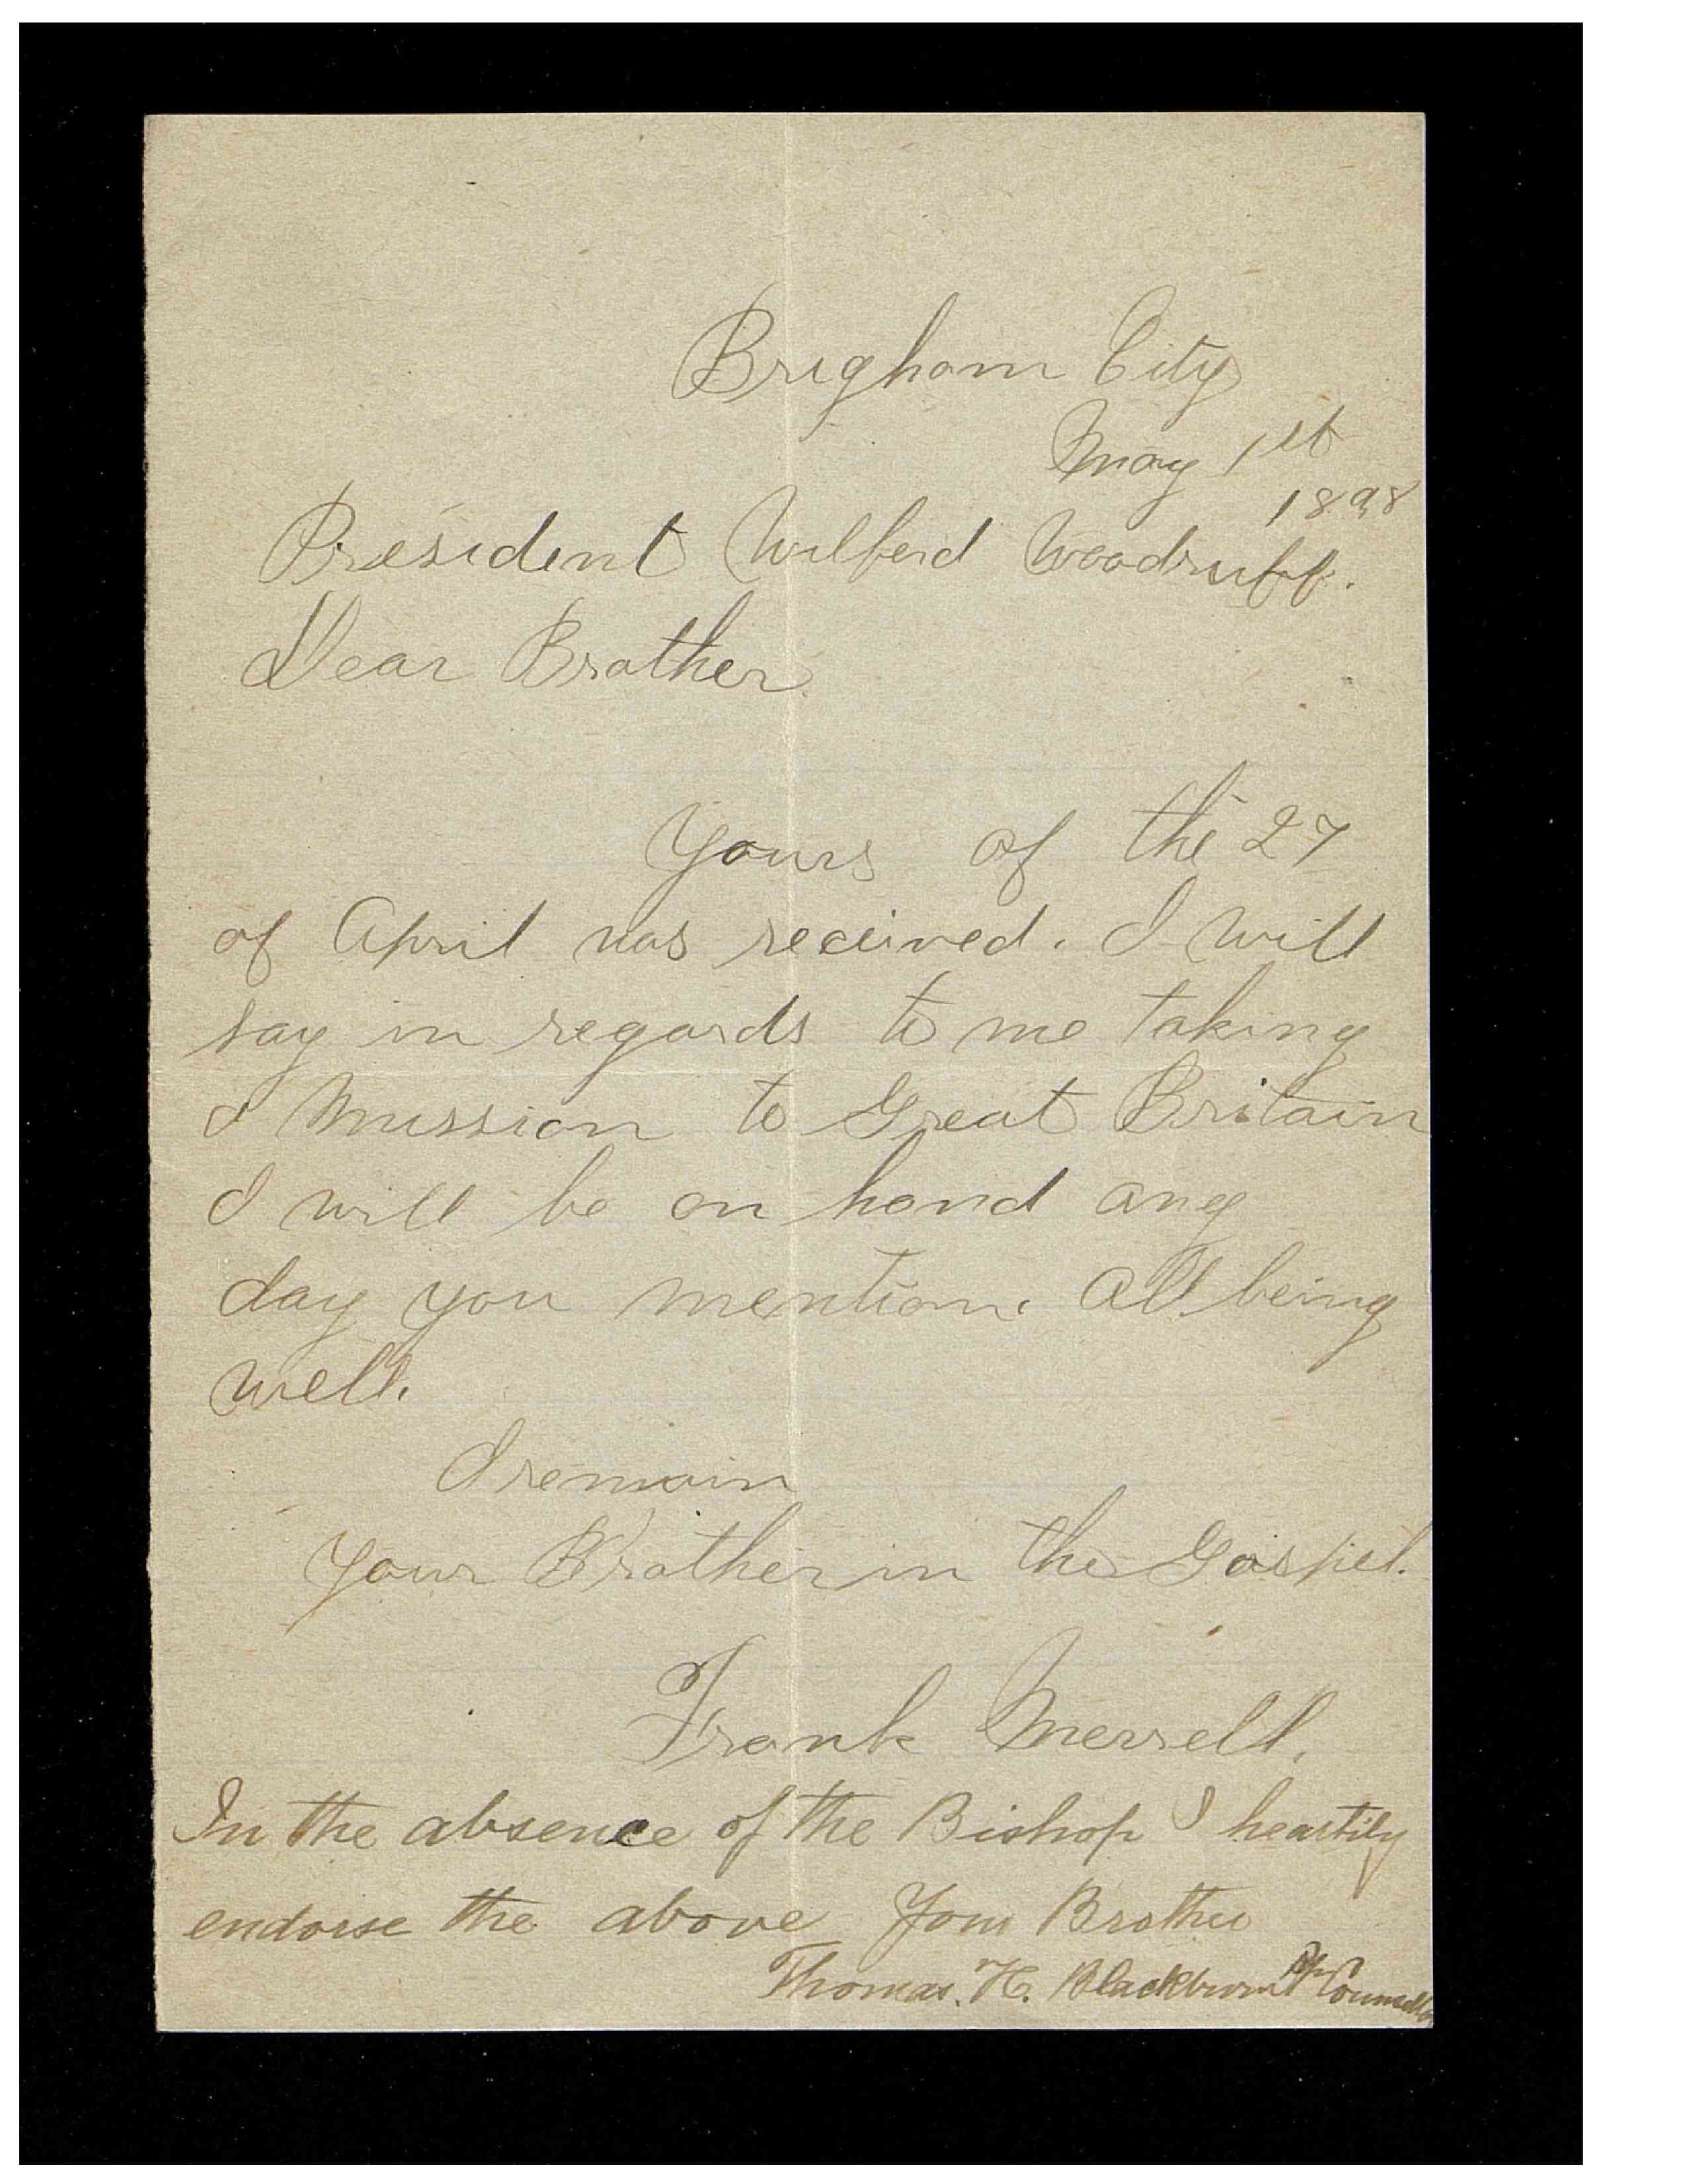 Brigham City
May 1st
1898
President Wilferd Woodruff.
Dear Brother.
Yours of the 27
of April was received. I will
say in regards to me taking
a Mission to Great Britain
I will be on hand any
day you mention. All being
well.
I remain
Your Brother in the Gospel.
Frank Merrell.
In the absence of the Bishop I heartily
endorse the above Your Brother
Thomas. H. Blackburn 1st Counsellor